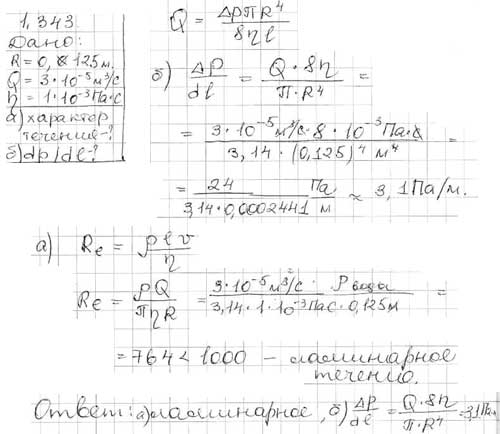 1, 343
Дано:
R = 0, 125 м.
Q = 3 · 10⁻⁵ м³/с
η = 1 · 10⁻³ Па · с
а) характер
течения - ?
б) dp/dl - ?
Q = ΔpπR⁴ / 8ηl
б) ΔP/dl = Q · 8η / П · R⁴ =
= 3 · 10⁻⁵ м³/с · 8 · 10⁻³ Па · с / 3,14 · (0,125)⁴ м⁴ =
= 24 / 3,14 · 0,0002441 Па/м ≈ 3,1 Па/м.
а) Re = ρlv / η
Re = ρQ / ПηR = 3 · 10⁻⁵ м³/с · ρ воды / 3,14 · 1 · 10⁻³ Па с · 0,125 м =
= 764 < 1000 - ламинарное
течение.
Ответ: а) ламинарное, б) ΔP/dl = Q · 8η / П · R⁴ = 3,1 Па/